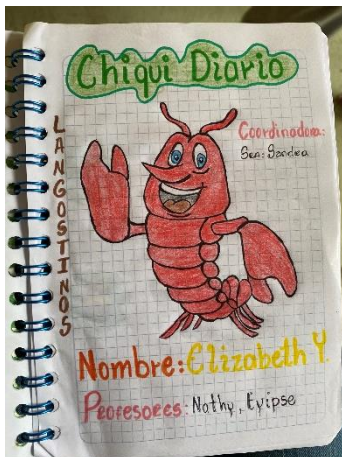 Chiqui Diario
LANGOSTINOS
Coordinadora:
Sra: Sandra
Nombre: Elizabeth Y.
Profesores: Nathy, Eyipse